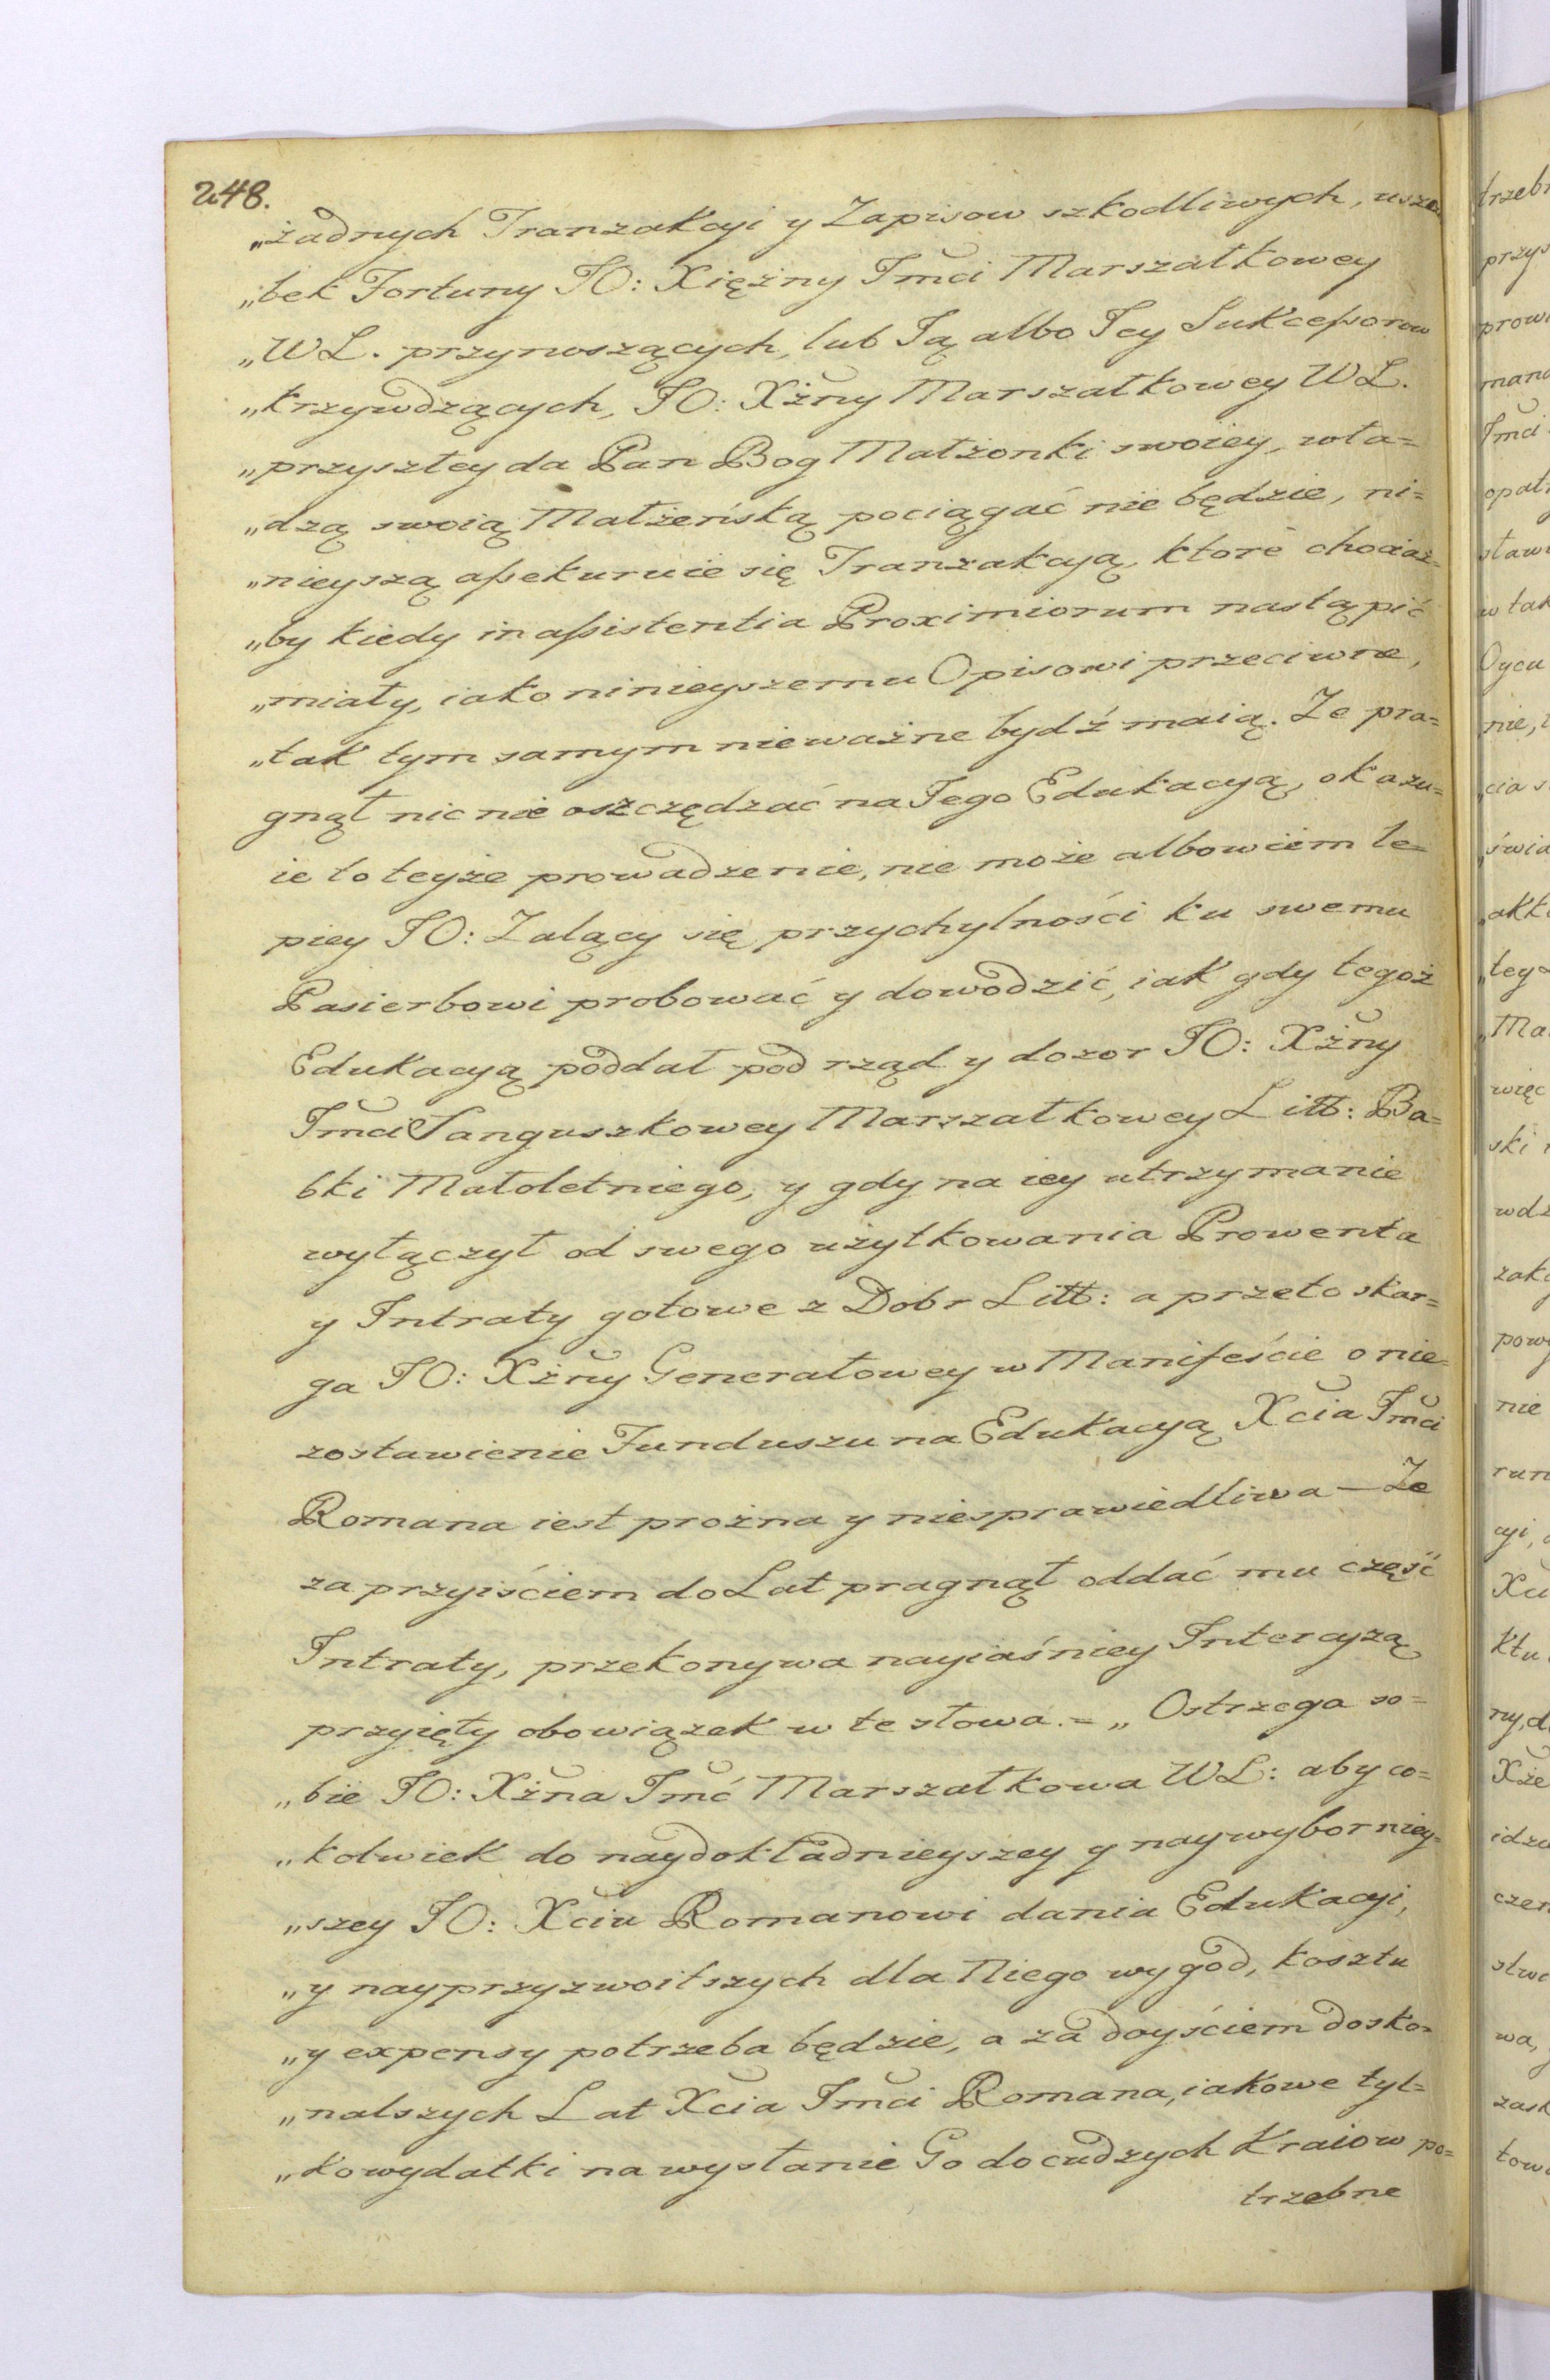 248.
„żadnych Tranzakcyi y Zapisow szkodliwych, uszcz
„bek Fortuny JO: Xiężny Jmci Marszałkowey
„WL. przynoszących, lub Ją albo Jey Sukcessorow
„krzywdzących, JO: Xżny Marszałkowey WL.
„przyszłey da Pan Bog Małżonki swoiey, wła=
„dzą swoią Małżeńską pociągać nie będzie, ni=
„nieyszą assekuruie się Tranzakcyą, ktore chociaż=
„by kiedy in assistentia Proximiorum nastąpić
„miały, iako ninieyszemu Opisowi przeciwne,
„tak tym samym nieważne bydź maią. Ze pra=
gnął nic nie oszczędzać na Jego Edukacyą, okazu=
ie to teyże prowadzenie, nie może albowiem le=
piey JO: Zalący się przychylności ku swemu
Pasierbowi probować y dowodzić, iak gdy tegoż
Edukacyą poddał pod rząd y dozor JO: Xżny
Jmci Sanguszkowey Marszałkowey Litt: Ba=
bki Małoletniego, y gdy na iey utrzymanie
wyłączył od swego użytkowania Prowenta
y Intraty gotowe z Dobr Litt: a przeto skar=
ga JO: Xżny Generałowey w Manifeście o nie=
zostawienie Funduszu na Edukacyą Xcia Jmci
Romana iest prożna y niesprawiedliwa — Ze
za przyiściem do Lat pragnął oddać mu część
Intraty, przekonywa nayiaśniey Intercyzą
przyięty obowiązek w te słowa. = „Ostrzega so=
„bie JO: Xżna Jmć Marszałkowa WL: aby co=
„kolwiek do naydokładnieyszey y naywybornìey=
„szey JO: Xciu Romanowi dania Edukacyi,
„y nayprzyzwoitszych dla Niego wygod, kosztu
„y expensy potrzeba będzie, a za doyściem dosko=
„nalszych Lat Xcia Jmci Romana, iakowe tyl=
„ko wydatki na wysłanie Go do cudzych Kraiow po=
trzebne